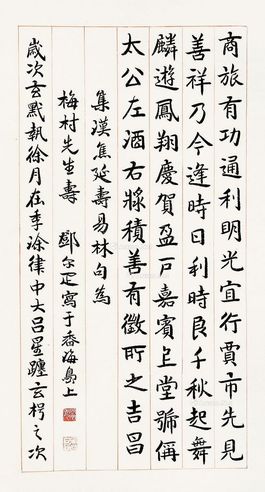 商旅有功通利明光宜行賈市先見
善祥乃今逢時日利時良千秋起舞
麟遊鳳翔慶賀盈戶嘉賓上堂號稱
太公左酒右漿積善有徵所之吉昌
集漢焦延壽易林句為
梅村先生壽 鄧尔疋寫于香海島上
歲次玄黓執徐月在季涂律中大呂星躔玄枵之次